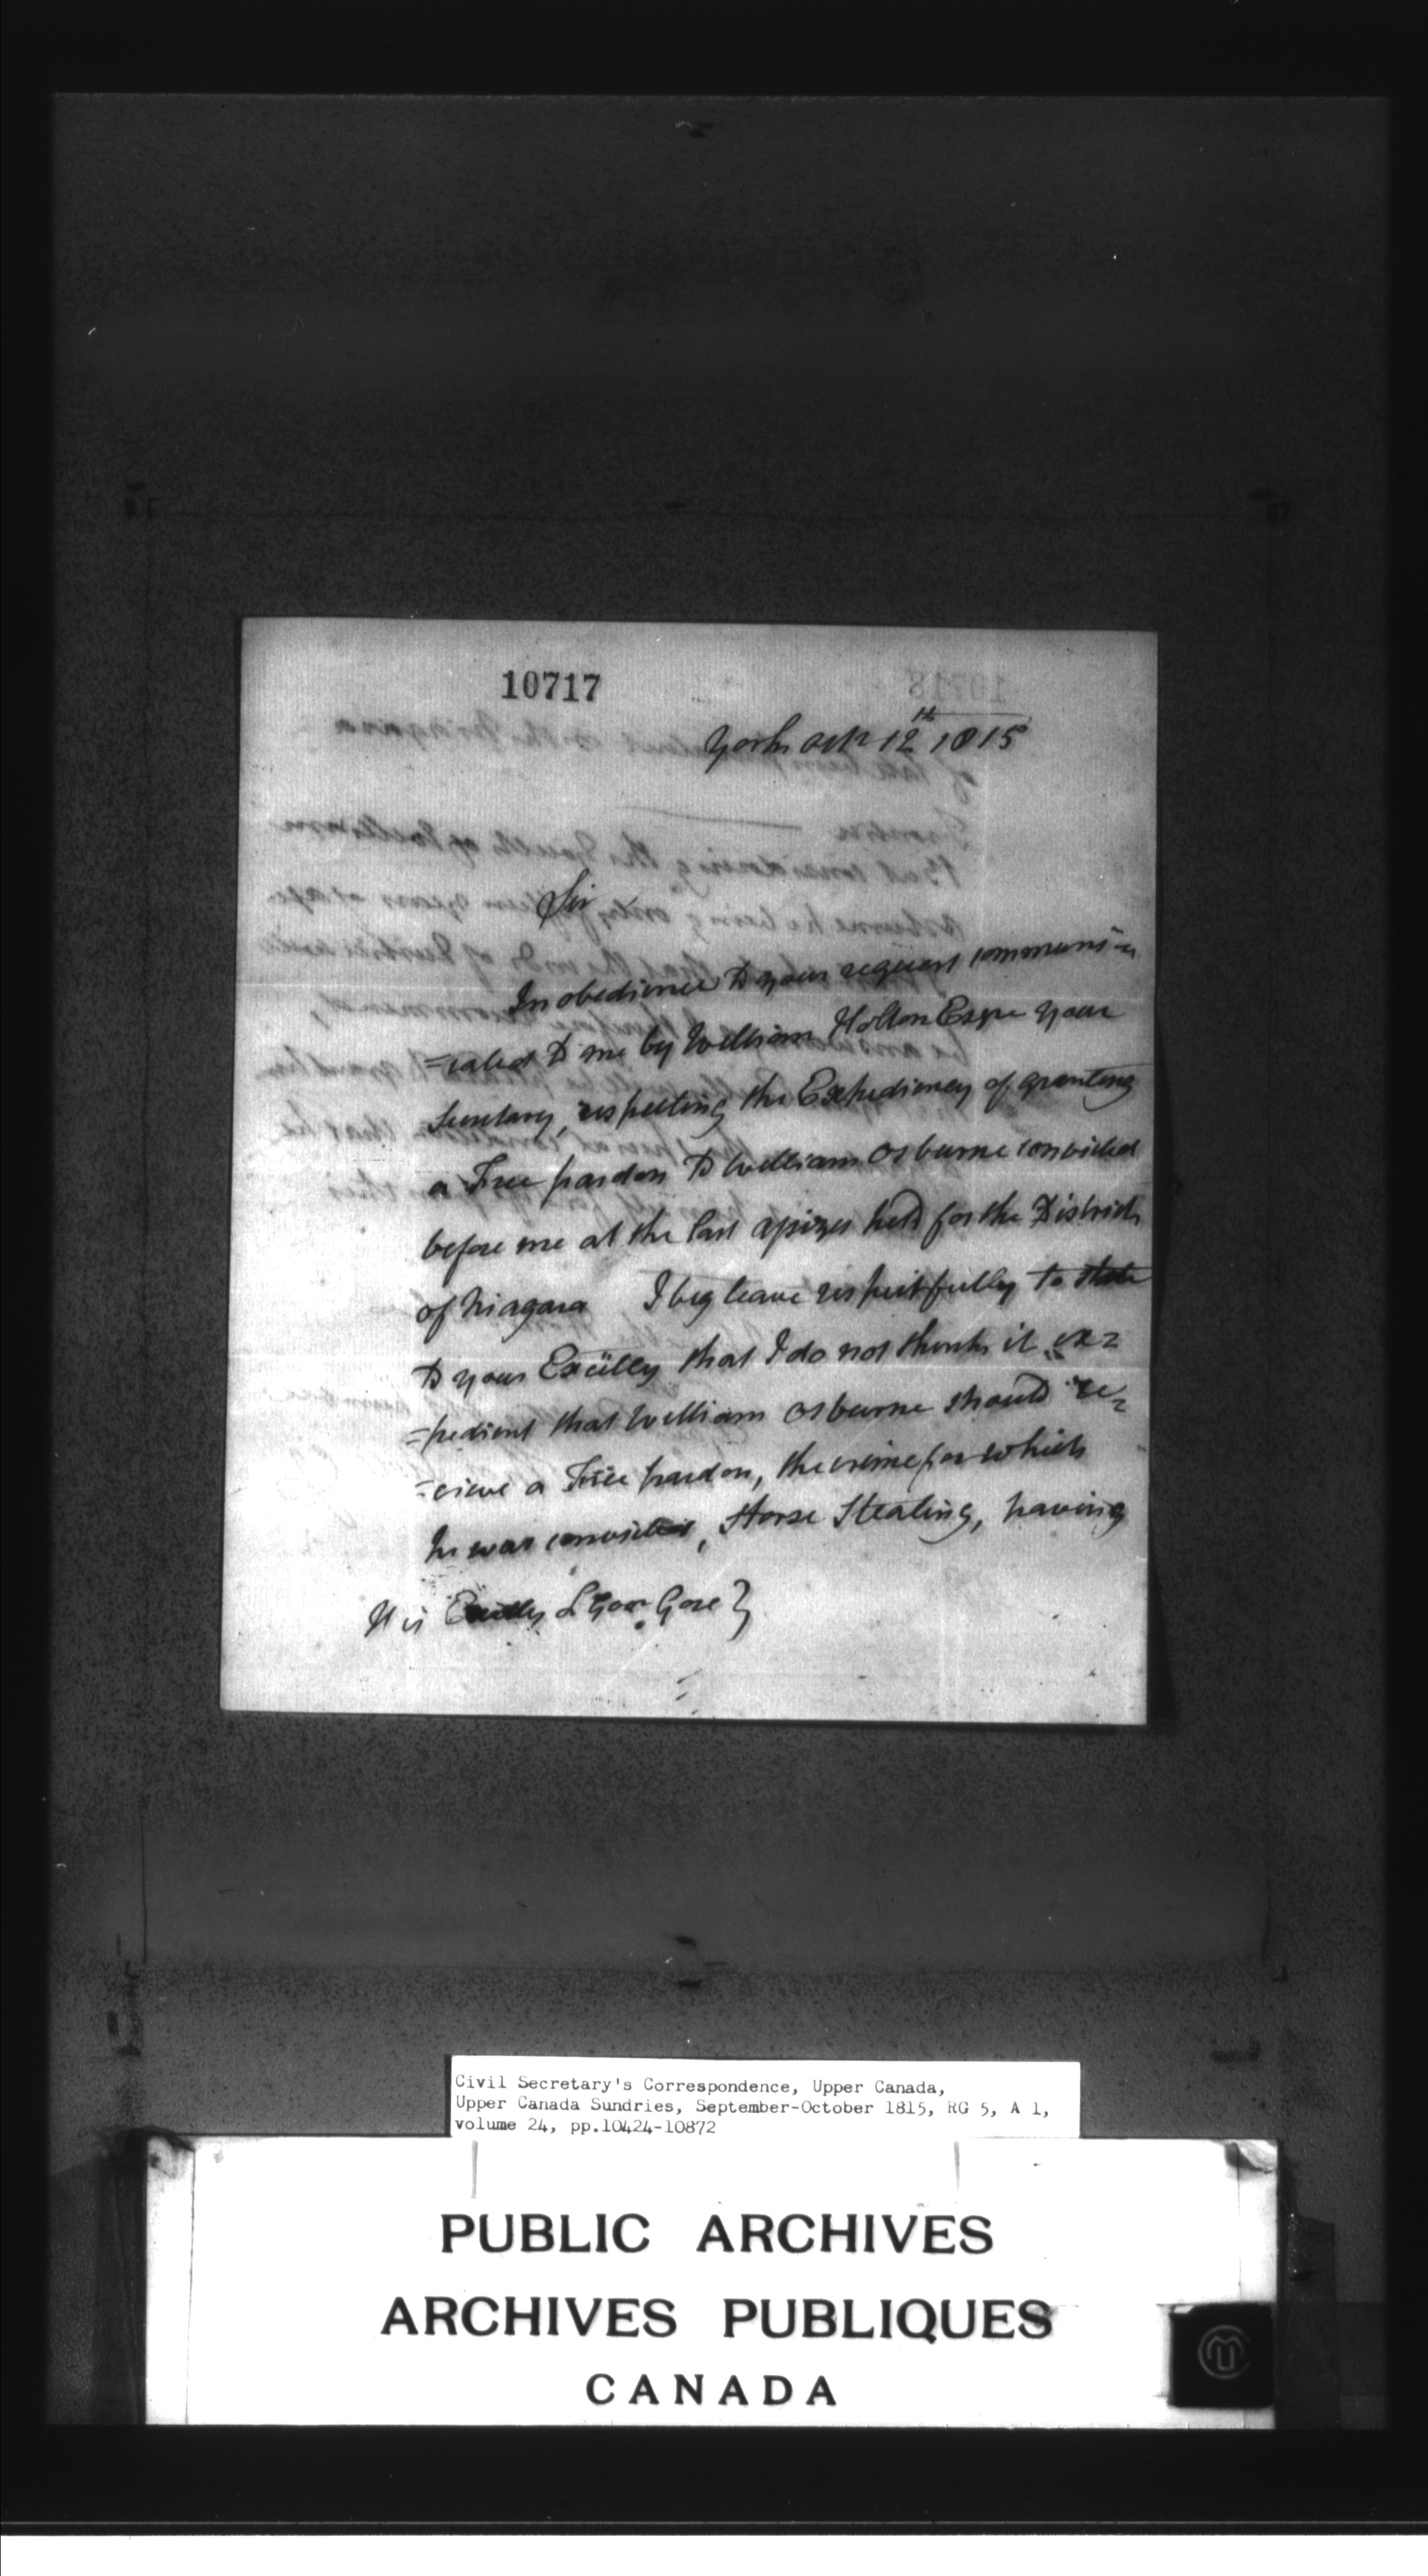 10717
York Octr 12th 1815
Sir
In obedience to your request communi=
=cated to me by William Holton Esqre your
Secretary, respecting the Expediency of granting
a Free pardon to William Osburne convicted
before me at the last assizes held for the District
of Niagara I beg leave respectfully to state
to your Excelly that I do not think it ex=
=pedient that William Osburne should re=
=cieve a Free pardon, the crime for which
he was convicted, Horse Stealing, having
His Excelly L Govr Gore }
Civil Secretary's Correspondence, Upper Canada,
Upper Canada Sundries, September-October 1815, RG 5, A 1,
volume 24, pp.10424-10872
PUBLIC ARCHIVES
ARCHIVES PUBLIQUES
CANADA